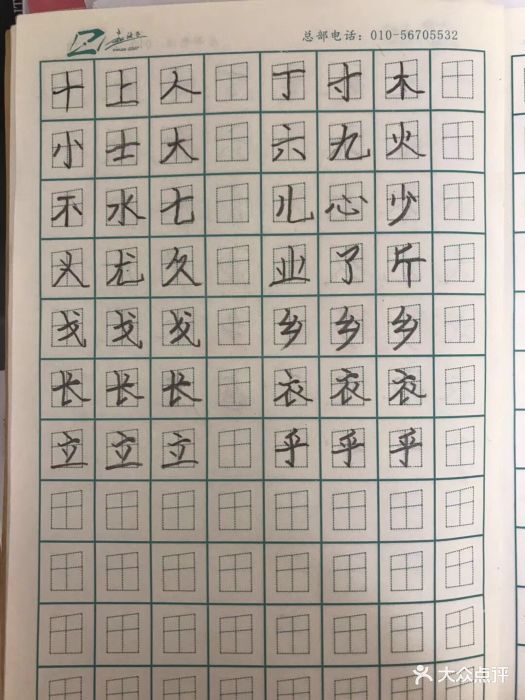 总部电话：010-56705532
十上人丁寸木
小士大六九火
不水七儿心少
头尤久业了斤
戈戈戈乡乡乡
长长长衣衣衣
立立立乎乎乎
大众点评